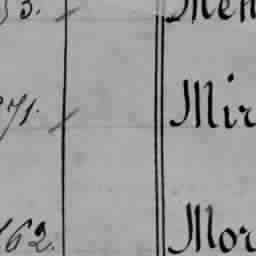 53. Men
271. Mir
162. Mor